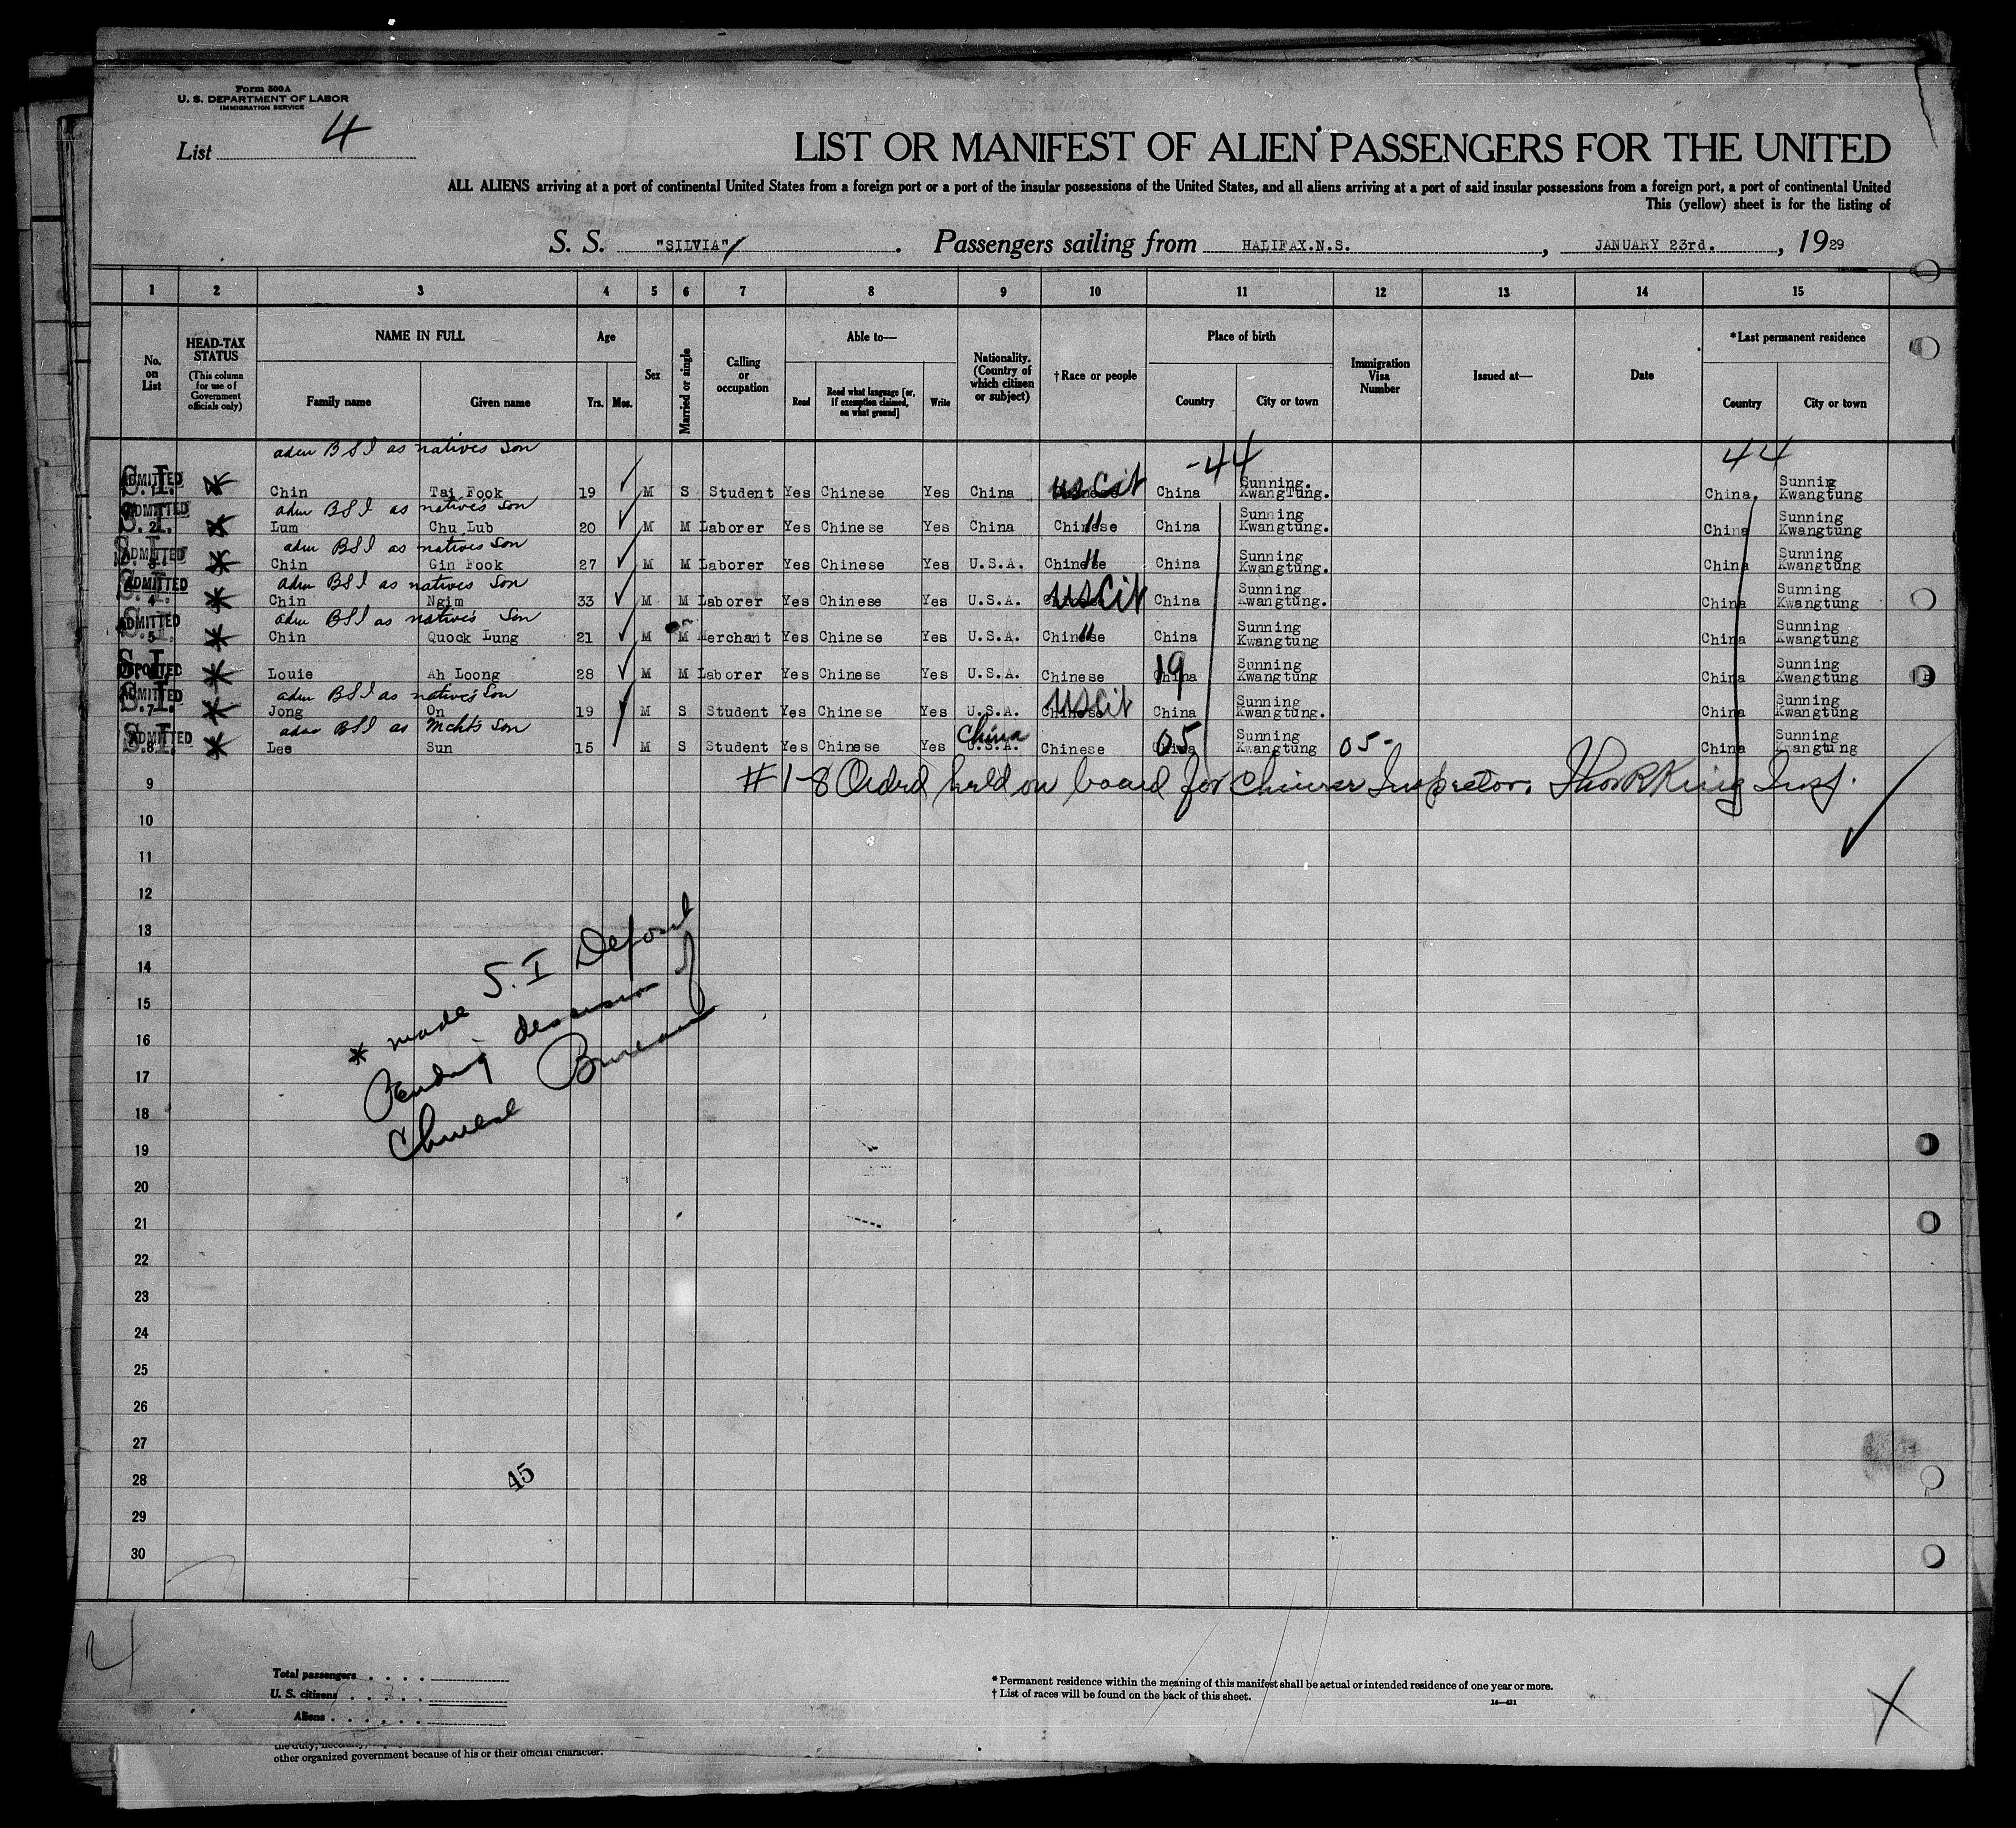 Form 500A
U. S. DEPARTMENT OF LABOR
IMMIGRATION SERVICE
List 4
LIST OR MANIFEST OF ALIEN PASSENGERS FOR THE UNITED
ALL ALIENS arriving at a port of continental United States from a foreign port or a port of the insular possessions of the United States, and all aliens arriving at a port of said insular possessions from a foreign port, a port of continental United
This (yellow) sheet is for the listing of
S. S. "SILVIA" . Passengers sailing from HALIFAX.N.S. , JANUARY 23rd. , 1929
1 2 3 4 5 6 7 8 9 10 11 12 13 14 15
No. on List
HEAD-TAX STATUS
(This column for use of Government officials only)
NAME IN FULL
Family name Given name
Age
Yrs. Mos.
Sex
Married or single
Calling or occupation
Able to—
Read
Read what language [or, if exemption claimed, on what ground]
Write
Nationality. (Country of which citizen or subject)
†Race or people
Place of birth
Country City or town
Immigration Visa Number
Issued at—
Date
*Last permanent residence
Country City or town
adm BSI as natives Son -44 44
S.I. ADMITTED 1 * Chin Tai Fook 19 ✓ M S Student Yes Chinese Yes China US Cit China Sunning. KwangTung. China, Sunning Kwangtung
adm BSI as natives Son
S.I. ADMITTED 2 * Lum Chu Lub 20 ✓ M M Laborer Yes Chinese Yes China Chinese " China Sunning Kwangtung. China Sunning Kwangtung
adm BSI as natives Son
S.I. ADMITTED * Chin Gin Fook 27 ✓ M M Laborer Yes Chinese Yes U.S.A. Chinese " China Sunning Kwangtung. China Sunning Kwangtung
adm BSI as natives Son
S.I. ADMITTED 4 * Chin Ngim 33 ✓ M M Laborer Yes Chinese Yes U.S.A. Chinese US Cit China Sunning Kwangtung. China Sunning Kwangtung
adm BSI as natives Son
S.I. ADMITTED 5 * Chin Quock Lung 21 ✓ M M Merchant Yes Chinese Yes U.S.A. Chinese " China Sunning Kwangtung China Sunning Kwangtung
S.I. DEPORTED * Louie Ah Loong 28 ✓ M M Laborer Yes Chinese Yes U.S.A. Chinese China 19 Sunning Kwangtung China Sunning Kwangtung
adm BSI as native's Son
S.I. ADMITTED 7 * Jong On 19 ✓ M S Student Yes Chinese Yes U.S.A. Chinese US Cit China Sunning Kwangtung. China Sunning Kwangtung
adm BSI as Mcht's Son China
S.I. ADMITTED 8 * Lee Sun 15 M S Student Yes Chinese Yes U.S.A. Chinese China 05 Sunning Kwangtung 05- China Sunning Kwangtung
9 #1-8 Ordrd held on board for Chinese Inspector. Thos R King Insp. ✓
10
11
12
13
14
15
16
17
18
19
20
21
22
23
24
25
26
27
28
29
30
* made S.I Deport
Pending decision of
Chinese Bureau
45
Total passengers . . . .
U. S. citizens . . . . .
Aliens . . . . . .
*Permanent residence within the meaning of this manifest shall be actual or intended residence of one year or more.
†List of races will be found on the back of this sheet.
14—431
X
other organized government because of his or their official character.